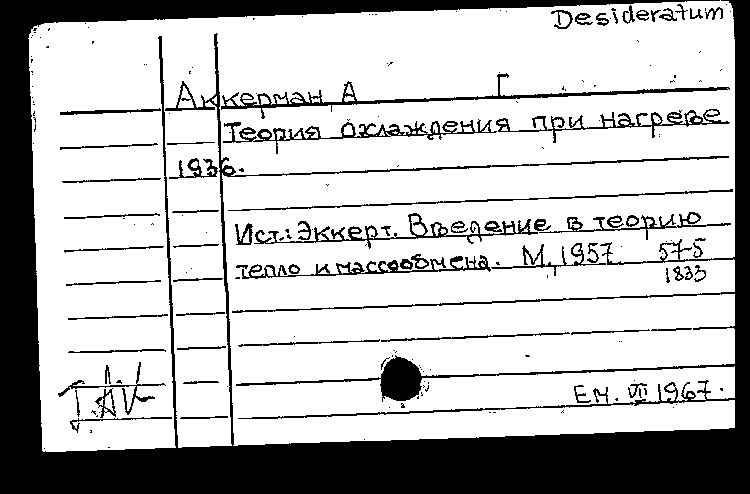 Desideratum
Аккерман, А Г
Теория охлаждения при нагреве
1936.
Ист.: Эккерт. Введение в теорию
тепло и массообмена. М., 1957. 57-5
1833
Ем. VII 1967.